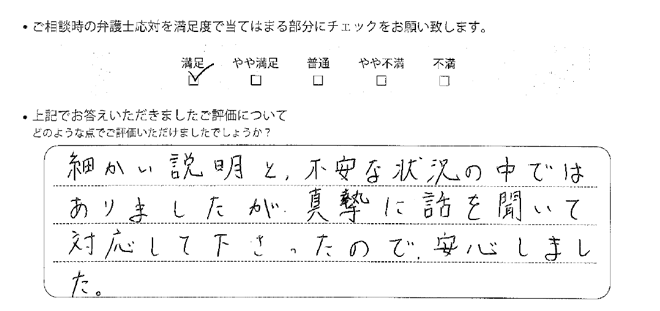 ・ご相談時の弁護士応対を満足度で当てはまる部分にチェックをお願い致します。
満足 やや満足 普通 やや不満 不満
・上記でお答えいただきましたご評価について
どのような点でご評価いただけましたでしょうか？
細かい説明と、不安な状況の中では
ありましたが、真摯に話を聞いて
対応して下さったので、安心しまし
た。